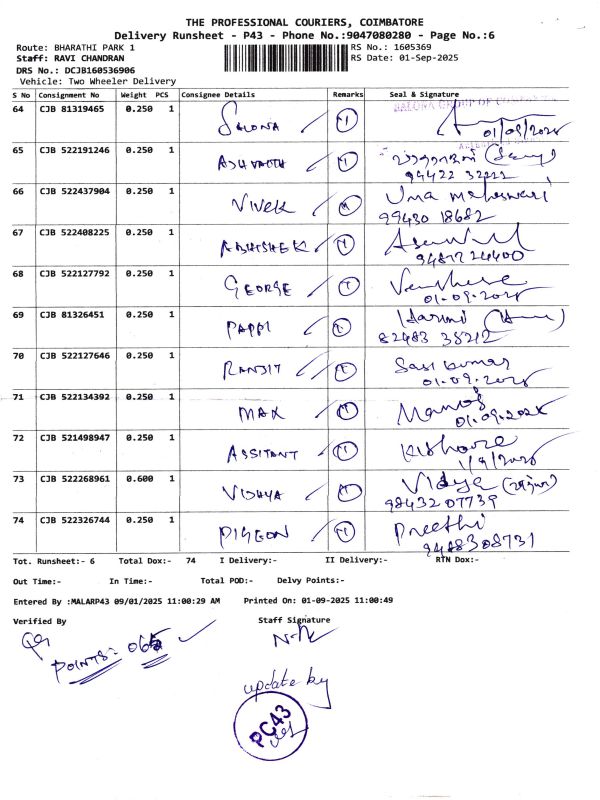 THE PROFESSIONAL COURIERS, COIMBATORE
Delivery Runsheet - P43 - Phone No.:9047080280 - Page No.:6
Route: BHARATHI PARK 1 RS No.: 1605369
Staff: RAVI CHANDRAN RS Date: 01-Sep-2025
DRS No.: DCJB160536906
Vehicle: Two Wheeler Delivery
S No Consignment No Weight PCS Consignee Details Remarks Seal & Signature
64 CJB 81319465 0.250 1 SALONA
65 CJB 522191246 0.250 1 ASHVATH
94422 32222
66 CJB 522437904 0.250 1 VIVEK Uma maheswari
99430 18682
67 CJB 522408225 0.250 1 ABHISHEK
94877 24400
68 CJB 522127792 0.250 1 GEORGE
01.09.2025
69 CJB 81326451 0.250 1 PAPPI Harini
82483 38212
70 CJB 522127646 0.250 1 RANJIT Sasi kumar
01.09.2025
71 CJB 522134392 0.250 1 MAK Manoj
01.09.2025
72 CJB 521498947 0.250 1 ASSITANT Kishore
1/9/2025
73 CJB 522268961 0.600 1 VIDHYA Vidya
98432 07739
74 CJB 522326744 0.250 1 PIGEON Preethi
9488308731
Tot. Runsheet:- 6 Total Dox:- 74 I Delivery:- II Delivery:- RTN Dox:-
Out Time:- In Time:- Total POD:- Delvy Points:-
Entered By :MALARP43 09/01/2025 11:00:29 AM Printed On: 01-09-2025 11:00:49
Verified By Staff Signature
POINTS:
update by
PC43